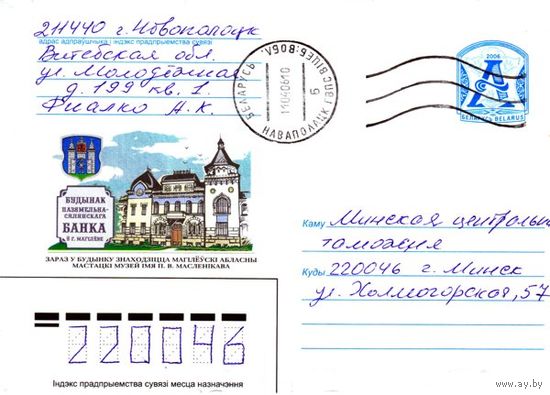 211440 г. Новополоцк
адрас адпраўшчыка і індэкс прадпрыемства сувязі
Витебская обл.
ул. Молодёжная
д. 199 кв. 1
Фиалко А. К.
БЕЛАРУСЬ
НАВАПОЛАЦК
2006
А
БЕЛАРУСЬ BELARUS
БУДЫНАК
ПАЗЯМЕЛЬНА-
СЯЛЯНСКАГА
БАНКА
Ў Г. МАГІЛЁВЕ
ЗАРАЗ У БУДЫНКУ ЗНАХОДЗІЦЦА МАГІЛЁЎСКІ АБЛАСНЫ
МАСТАЦКІ МУЗЕЙ ІМЯ П. В. МАСЛЕНІКАВА
Каму Минская центральная
таможня
Куды 220046 г. Минск
ул. Холмогорская, 57
220046
Індэкс прадпрыемства сувязі месца назначэння
www.ay.by